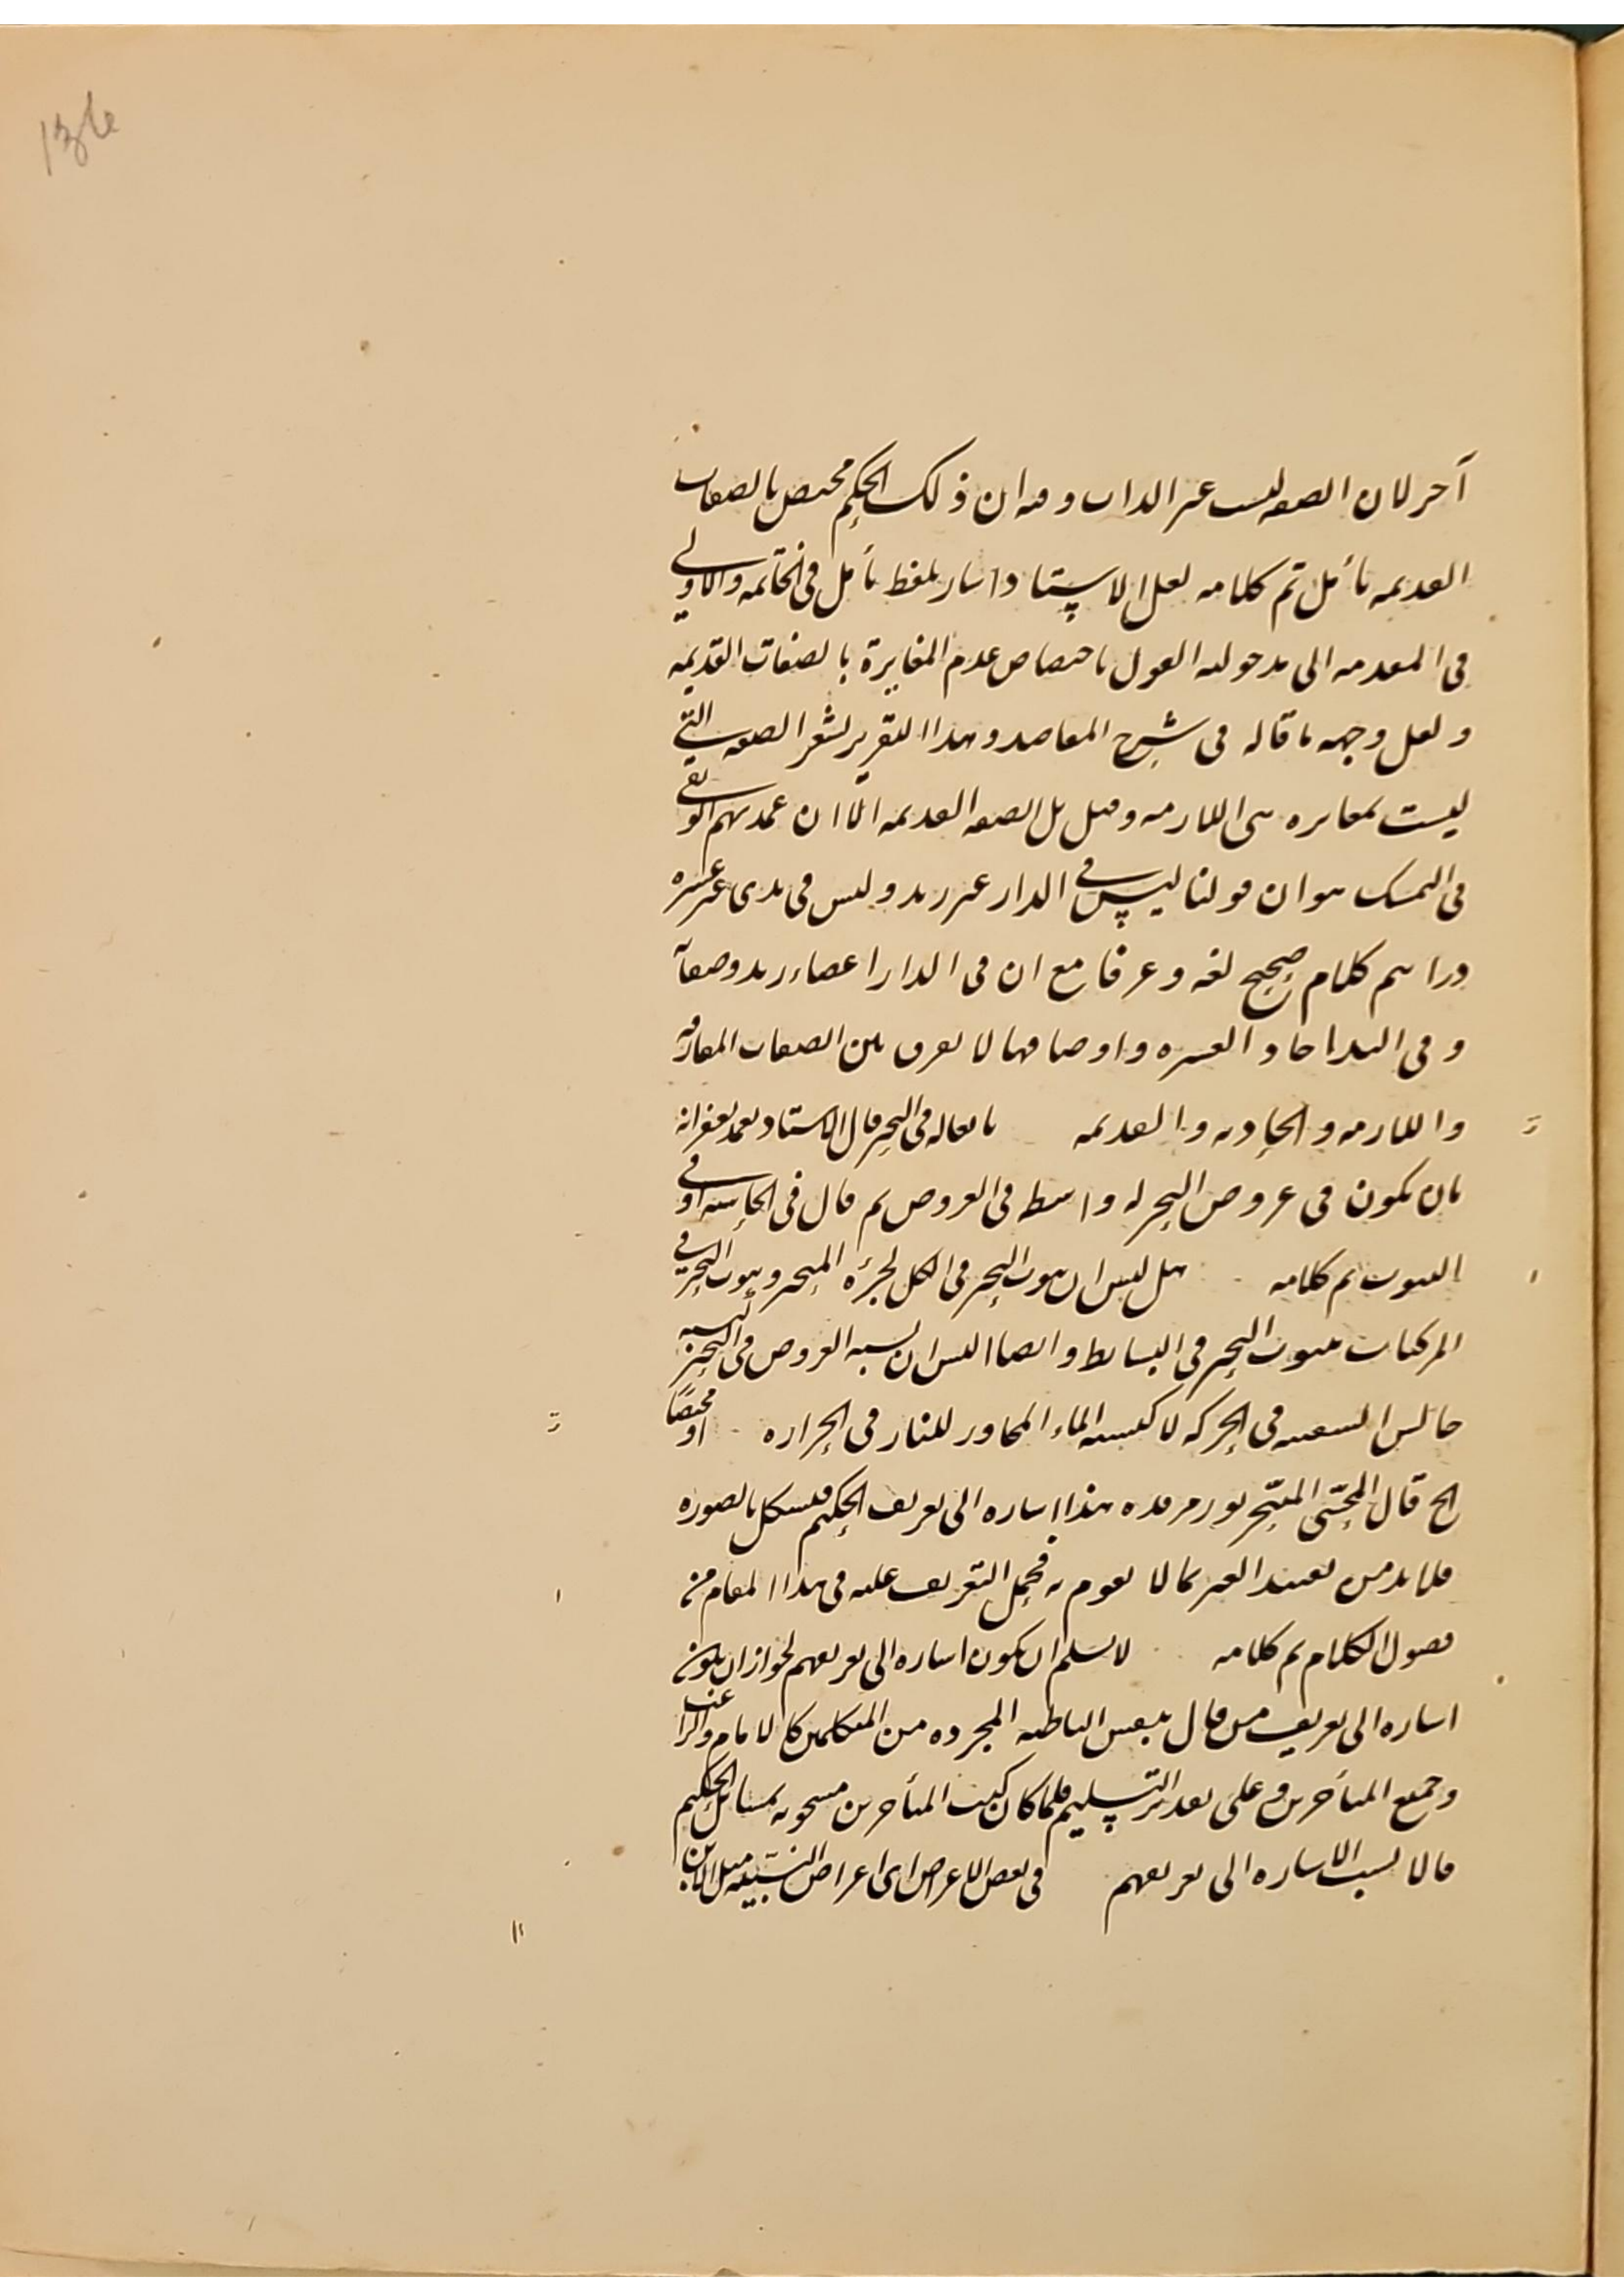 آخر لان الصفه ليست عين الذات وفيه ان ذلك الحكم مختص بالصفات
القديمه تأمل تم كلامه لعل الاستاد اشار بلفظ تأمل فى الخاتمه والاولى
فى المقدمه الى مدخوليه القول باختصاص عدم المغايرة بالصفات القديمه
ولعل وجهه ما قاله فى شرح المقاصد وهذا التقرير يشعر الصفه التى
ليست بمغايره هى اللازمه وقيل بل الصفه القديمه الا ان عمدتهم الوثقى
فى التمسك هو ان قولنا ليس فى الدار غير زيد وليس فى يدى غير عشره
دراهم كلام صحيح لغه وعرفا مع ان فى الدار اعضاء زيد وصفاته
وفى اليد احاد العشره واوصافها لا يفرق بين الصفات المفارقه
واللازمه والحادثه والقديمه ما يقاله فى التحيز قال الاستاد
بان يكون فى عروض التحيز له واسطه فى العروض ثم قال فى الحاشيه او فى
الثبوت تم كلامه بل ليس ان ثبوت التحيز فى الكل لجزئه المتحيز وثبوت التحيز فى
المركبات بثبوت التحيز فى البسائط وايضا اليس ان نسبه العروض فى التحيز كنسبه
جالس السفينه فى الحركه لا كنسبه الماء المجاور للنار فى الحراره او مختصا
الخ قال المحشى المتبحر نور مرقده هذا اشاره الى تعريف الحكيم فيشكل بالصوره
فلا بد من تقييد الغير بما لا يقوم به فحمل التعريف عليه فى هذا المقام من
فضول الكلام تم كلامه لا نسلم ان يكون اشاره الى تعريفهم لجواز ان يكون
اشاره الى تعريف من قال بنفس الناطقه المجرده من المتكلمين كالامام والراغب
وجميع المتأخرين وعلى تقدير التسليم فلما كان كتب المتأخرين مشحونه بمسائل الحكيم
فالانسب الاشاره الى تعريفهم فى بعض الاعراض اى اعراض النسبيه مثل الاين